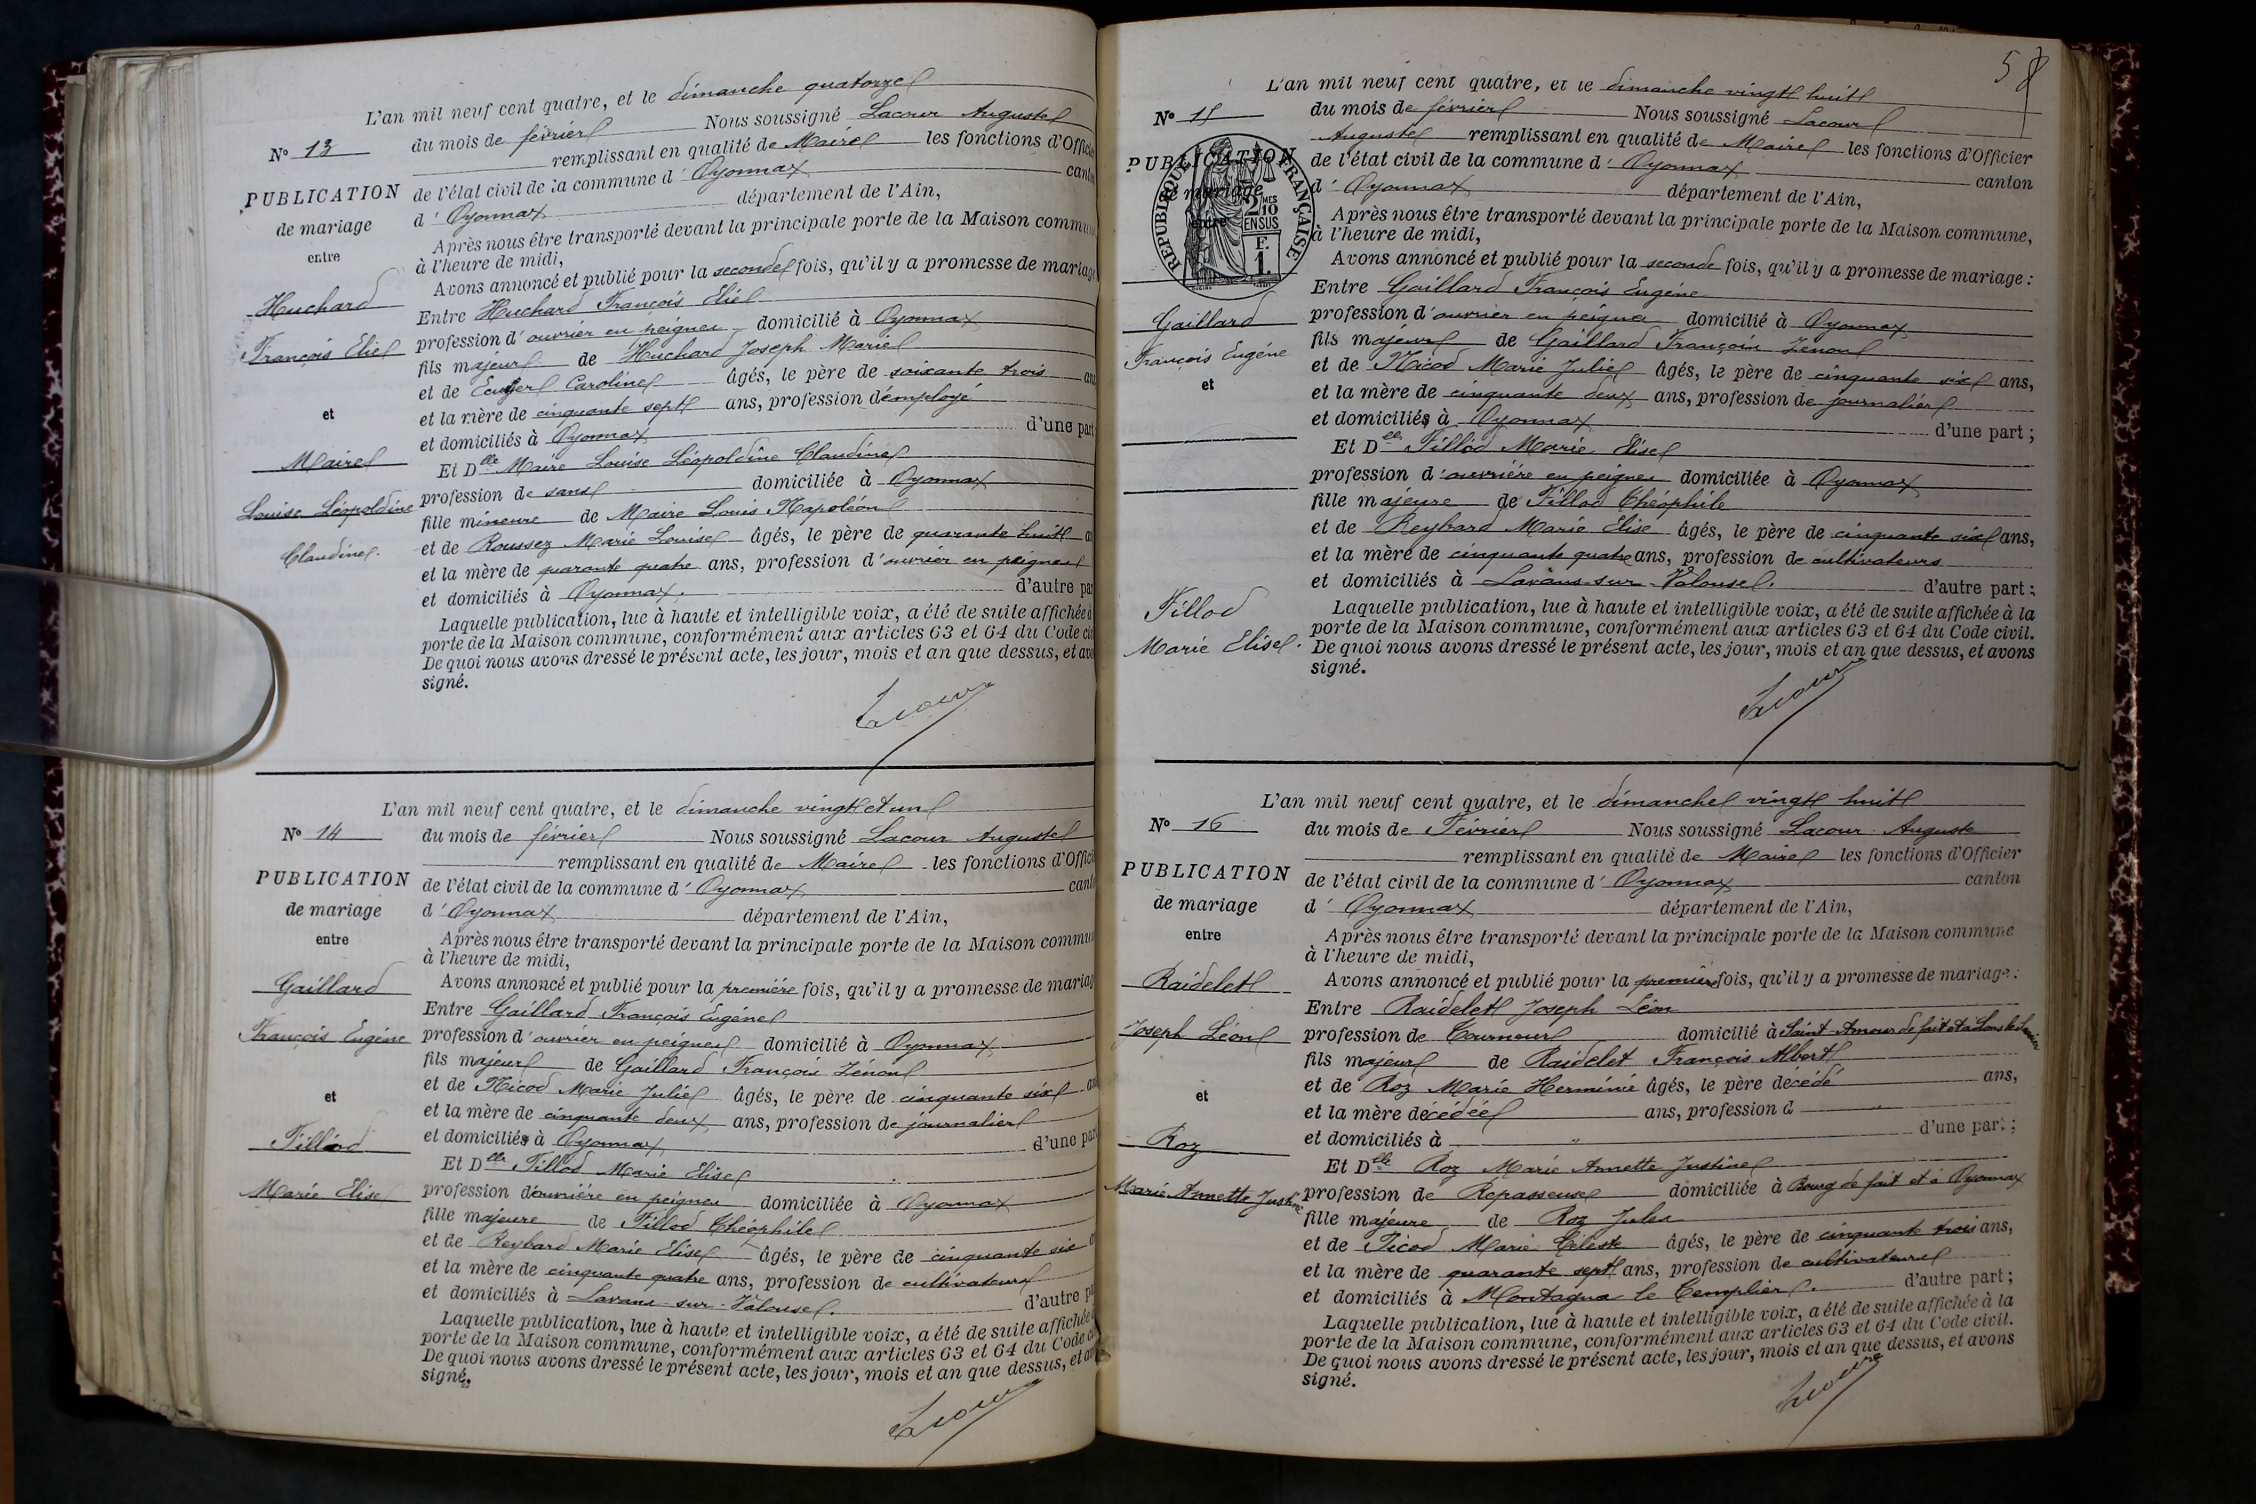 L'an mil neuf cent quatre, et le dimanche quatorze
N° 13
du mois de février Nous soussigné Lacour Auguste
remplissant en qualité de Maire les fonctions d'Officier
PUBLICATION
de mariage
entre
de l'état civil de la commune d' Oyonnax canton
d' Oyonnax département de l'Ain,
Après nous être transporté devant la principale porte de la Maison commune
à l'heure de midi,
Avons annoncé et publié pour la seconde fois, qu'il y a promesse de mariage
Huchard
François Eliel
et
Maire
Louise Léopoldine
Claudine.
Entre Huchard François Eliel
profession d'ouvrier en peignes domicilié à Oyonnax
fils majeur de Huchard Joseph Marie
et de Caroline âgés, le père de soixante trois ans
et la mère de cinquante sept ans, profession d'employé
et domiciliés à Oyonnax d'une part
Et Dlle Maire Louise Léopoldine Claudine
profession de sans domiciliée à Oyonnax
fille mineure de Maire Louis Napoléon
et de Roussez Marie Louise âgés, le père de quarante huit
et la mère de quarante quatre ans, profession d'ouvrier en peignes
et domiciliés à Oyonnax. d'autre par
Laquelle publication, lue à haute et intelligible voix, a été de suite affichée à
porte de la Maison commune, conformément aux articles 63 et 64 du Code civ
De quoi nous avons dressé le présent acte, les jour, mois et an que dessus, et avo
signé.
Lacour
L'an mil neuf cent quatre, et le dimanche vingt et un
N° 14
du mois de février Nous soussigné Lacour Auguste
remplissant en qualité de Maire les fonctions d'Offici
PUBLICATION
de mariage
entre
de l'état civil de la commune d' Oyonnax cant
d' Oyonnax département de l'Ain,
Après nous être transporté devant la principale porte de la Maison commun
à l'heure de midi,
Avons annoncé et publié pour la première fois, qu'il y a promesse de mariag
Gaillard
François Eugène
et
Tillod
Marie Elise
Entre Gaillard François Eugène
profession d'ouvrier en peignes domicilié à Oyonnax
fils majeur de Gaillard François Zénon
et de Nicod Marie Julie âgés, le père de cinquante six an
et la mère de cinquante deux ans, profession de journalier
et domiciliés à Oyonnax d'une par
Et Dlle Tillod Marie Elise
profession d'ouvrière en peignes domiciliée à Oyonnax
fille majeure de Tillod Théophile
et de Reybard Marie Elise âgés, le père de cinquante six
et la mère de cinquante quatre ans, profession de cultivateurs
et domiciliés à Lavans-sur-Valouse. d'autre p
Laquelle publication, lue à haute et intelligible voix, a été de suite affichée
porte de la Maison commune, conformément aux articles 63 et 64 du Code
De quoi nous avons dressé le présent acte, les jour, mois et an que dessus, et av
signé.
Lacour
58
L'an mil neuf cent quatre, et le dimanche vingt huit
N° 15
du mois de février Nous soussigné Lacour
Auguste remplissant en qualité de Maire les fonctions d'Officier
PUBLICATION
de mariage
entre
RÉPUBLIQUE FRANÇAISE
2/10 MES
EN SUS
F.
1.
de l'état civil de la commune d' Oyonnax canton
d' Oyonnax département de l'Ain,
Après nous être transporté devant la principale porte de la Maison commune,
à l'heure de midi,
Avons annoncé et publié pour la seconde fois, qu'il y a promesse de mariage :
Gaillard
François Eugène
et
Tillod
Marie Elise.
Entre Gaillard François Eugène
profession d'ouvrier en peignes domicilié à Oyonnax
fils majeur de Gaillard François Zénon
et de Nicod Marie Julie âgés, le père de cinquante six ans,
et la mère de cinquante deux ans, profession de journalier
et domiciliés à Oyonnax d'une part ;
Et Dlle Tillod Marie Elise
profession d'ouvrière en peignes domiciliée à Oyonnax
fille majeure de Tillod Théophile
et de Reybard Marie Elise âgés, le père de cinquante six ans,
et la mère de cinquante quatre ans, profession de cultivateurs
et domiciliés à Lavans-sur-Valouse. d'autre part ;
Laquelle publication, lue à haute et intelligible voix, a été de suite affichée à la
porte de la Maison commune, conformément aux articles 63 et 64 du Code civil.
De quoi nous avons dressé le présent acte, les jour, mois et an que dessus, et avons
signé.
Lacour
L'an mil neuf cent quatre, et le dimanche vingt huit
N° 16
du mois de Février Nous soussigné Lacour Auguste
remplissant en qualité de Maire les fonctions d'Officier
PUBLICATION
de mariage
entre
de l'état civil de la commune d' Oyonnax canton
d' Oyonnax département de l'Ain,
Après nous être transporté devant la principale porte de la Maison commune
à l'heure de midi,
Avons annoncé et publié pour la première fois, qu'il y a promesse de mariage :
Raidelet
Joseph Léon
et
Roz
Marie Annette Justine
Entre Raidelet Joseph Léon
profession de Tourneur domicilié à Saint-Amour de fait et à Lons le Saunier
fils majeur de Raidelet François Albert
et de Roz Marie Herminie âgés, le père décédé ans,
et la mère décédée ans, profession d "
et domiciliés à " d'une part ;
Et Dlle Roz Marie Annette Justine
profession de Repasseuse domiciliée à Bourg de fait et à Oyonnax
fille majeure de Roz Jules
et de Picod Marie Céleste âgés, le père de cinquante trois ans,
et la mère de quarante sept ans, profession de cultivateurs
et domiciliés à Montagna le Templier. d'autre part ;
Laquelle publication, lue à haute et intelligible voix, a été de suite affichée à la
porte de la Maison commune, conformément aux articles 63 et 64 du Code civil.
De quoi nous avons dressé le présent acte, les jour, mois et an que dessus, et avons
signé.
Lacour